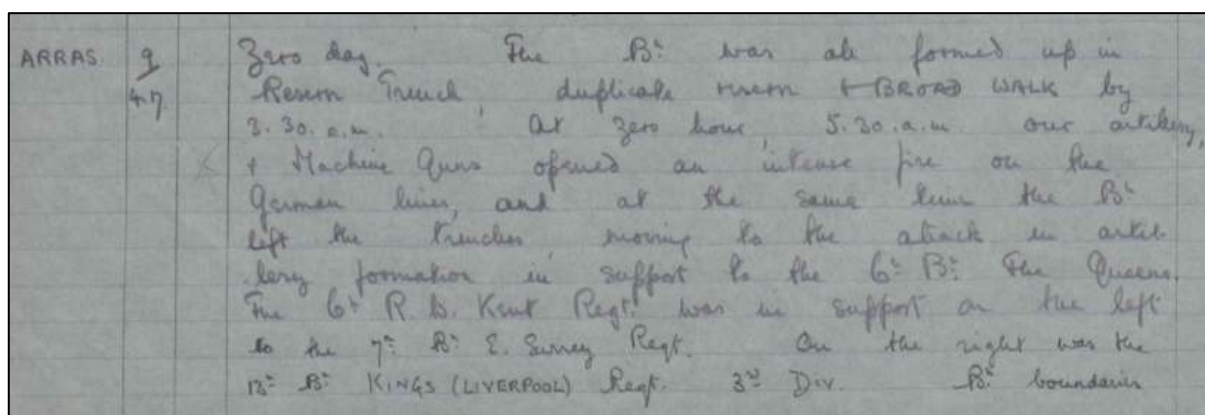 ARRAS. 9 Zero day. The Bn was all formed up in
4.17. Reserve Trench, duplicate reserve + BROAD WALK by
3.30. a.m. At zero hour, 5.30. a.m. our artillery,
+ Machine Guns opened an intense fire on the
German lines, and at the same time the Bn
left the trenches moving to the attack in artil
lery formation in support to the 6th Bn The Queens.
The 6th R. W. Kent Regt. was in support on the left
to the 7th Bn E. Surrey Regt. On the right was the
Bn KINGS (LIVERPOOL) Regt. 3rd Div. Bn boundaries